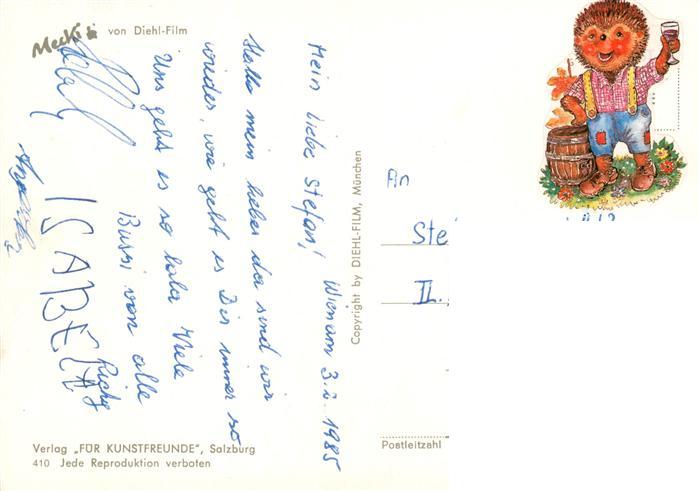 Mecki
von Diehl-Film
Mein liebe Stefan! Wien am 3.2.1985
Hallo mein lieber da sind wir
wieder, wie geht es Dir immer so
Uns geht es so lala Viele
Bussi von alle
Richy
ISABELA
Copyright by DIEHL-FILM, München
An
Ste
II.
Postleitzahl
Verlag „FÜR KUNSTFREUNDE", Salzburg
410 Jede Reproduktion verboten